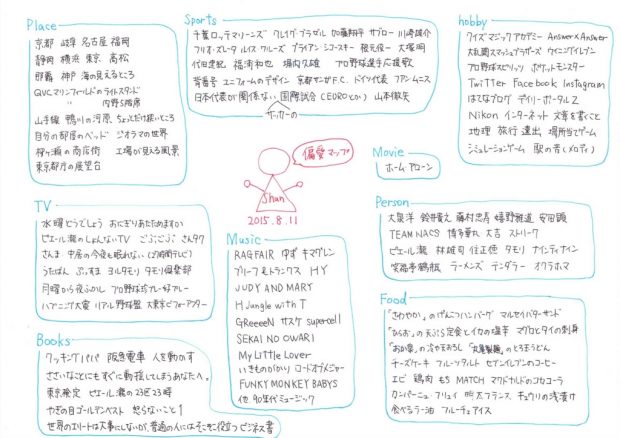 Place
京都 岐阜 名古屋 福岡
静岡 横浜 東京 高松
那覇 神戸 海の見えるところ
QVCマリンフィールドのライトスタンド
〃 内野S指席
山手線 鴨川の河原 ちょっとだけ狭いところ
自分の部屋のベッド ジオラマの世界
柳ヶ瀬の商店街 工場が見える風景
東京都庁の展望台
Sports
千葉ロッテマリーンズ クレイグ・ブラゼル 加藤翔平 サブロー 川崎雄介
フリオ・ズレータ ルイス・クルーズ ブライアン・シコースキー 根元俊一 大塚明
代田建紀 福浦和也 堀内久雄 プロ野球選手応援歌
背番号 ユニフォームのデザイン 京都サンガF.C. ドイツ代表 ファン・ニース
日本代表が関係ない国際試合(EUROとか) 山本徹矢
サッカーの
hobby
クイズマジックアカデミー Answer×Answer
大乱闘スマッシュブラザーズ ウイニングイレブン
プロ野球スピリッツ ポケットモンスター
Twitter Facebook Instagram
はてなブログ デイリーポータルZ
Nikon インターネット 文章を書くこと
地理 旅行 遠出 場所当てゲーム
シミュレーションゲーム 駅の音(メロディ)
偏愛マップ
Shun
2015.8.11
Movie
ホーム・アローン
TV
水曜どうでしょう おにぎりあたためますか
ピエール瀧のしょんないTV ごぶごぶ さんタク
さんま・中居の今夜も眠れない(27時間テレビ)
うたばん ぷっすま ヨルタモリ タモリ倶楽部
月曜から夜ふかし プロ野球珍プレー好プレー
ハプニング大賞 リアル野球盤 大東京ビフォーアフター
Music
RAG FAIR ゆず キマグレン
ブリーフ&トランクス HY
JUDY AND MARY
H Jungle with T
GReeeeN サスケ supercell
SEKAI NO OWARI
My Little Lover
いきものがかり ロードオブメジャー
FUNKY MONKEY BABYS
他 90年代ミュージック
Person
大泉洋 鈴井貴之 藤村忠寿 嬉野雅道 安田顕
TEAM NACS 博多華丸・大吉 ストリーク
ピエール瀧 林雄司 住正徳 タモリ ナインティナイン
笑福亭鶴瓶 ラーメンズ テンダラー オクラホマ
Books
クッキングパパ 阪急電車 人を動かす
ささいなことにもすぐに動揺してしまうあなたへ。
東京検定 ピエール瀧の23区23時
やぎの目ゴールデンベスト 怒らないこと1
世界のエリートは大事にしないが、普通の人にはそこそこ役立つビジネス書
Food
「さわやか」のげんこつハンバーグ マルセイバターサンド
「からお」の天ぷら定食とイカの塩辛 マグロとタイの刺身
「おか泉」の冷や天おろし 「丸亀製麺」のとろ玉うどん
チーズケーキ フルーツタルト セブンイレブンのコーヒー
エビ 鶏肉 もち MATCH マクドナルドのコカコーラ
カンパーニュ フリュイ 吟太フランス キュウリの浅漬け
食べるラー油 フルーチェ アイス